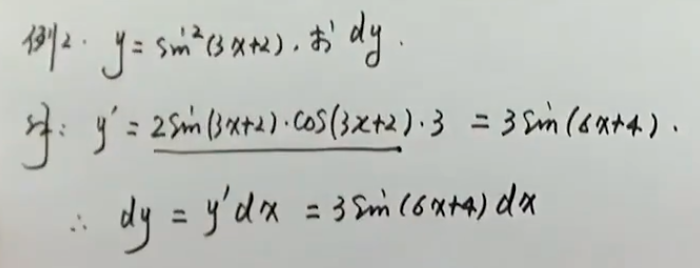 例2. y = sin²(3x+2), 求 dy.
解: y' = 2sin(3x+2)·cos(3x+2)·3 = 3sin(6x+4).
∴ dy = y'dx = 3sin(6x+4)dx